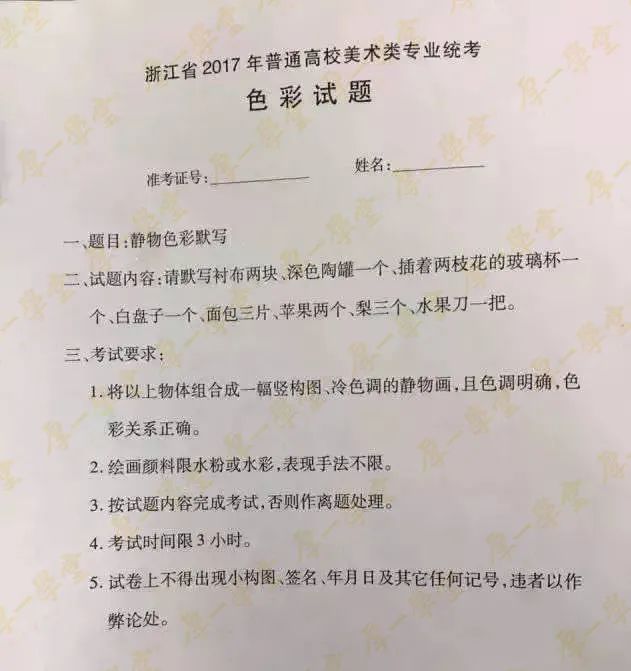 浙江省2017年普通高校美术类专业统考
色彩试题
准考证号:
姓名:
一、题目:静物色彩默写
二、试题内容:请默写衬布两块、深色陶罐一个、插着两枝花的玻璃杯一
个、白盘子一个、面包三片、苹果两个、梨三个、水果刀一把。
三、考试要求:
1. 将以上物体组合成一幅竖构图、冷色调的静物画,且色调明确,色
彩关系正确。
2. 绘画颜料限水粉或水彩,表现手法不限。
3. 按试题内容完成考试,否则作离题处理。
4. 考试时间限3小时。
5. 试卷上不得出现小构图、签名、年月日及其它任何记号,违者以作
弊论处。
厚一學堂